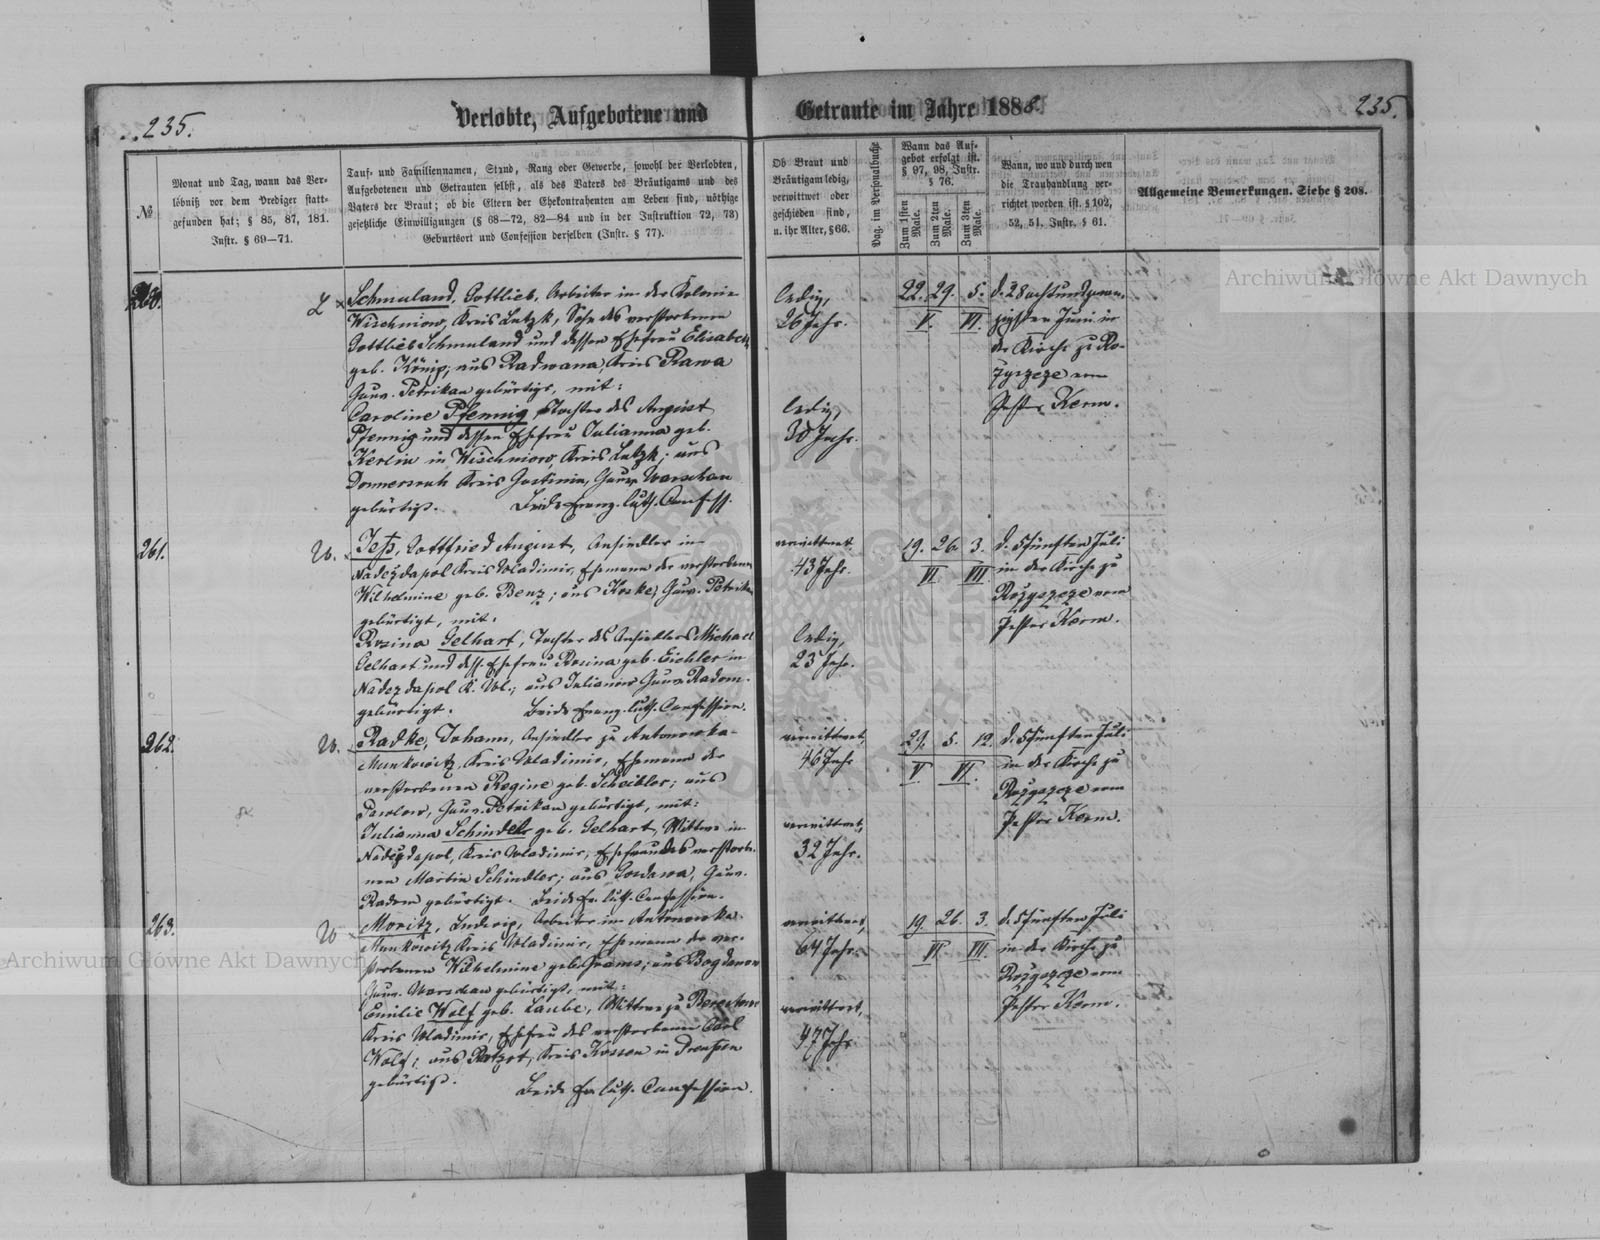 235.
Verlobte, Aufgebotene und
Getraute im Jahre 1888.
235.
№
Monat und Tag, wann das Ver-
löbniß vor dem Prediger statt-
gefunden hat; § 85, 87, 181.
Instr. § 69—71.
Tauf- und Familiennamen, Stand, Rang oder Gewerbe, sowohl der Verlobten,
Aufgebotenen und Getrauten selbst, als des Vaters des Bräutigams und des
Vaters der Braut; ob die Eltern der Ehekontrahenten am Leben sind, nöthige
gesetzliche Einwilligungen (§ 68—72, 82—84 und in der Instruktion 72, 73)
Geburtsort und Confession derselben (Instr. § 77).
Ob Braut und
Bräutigam ledig,
verwittwet oder
geschieden sind,
u. ihr Alter, § 66.
Pag. im Personalbuche
Wann das Auf-
gebot erfolgt ist.
§ 97, 98, Instr.
§ 76.
Zum 1sten Male.
Zum 2ten Male.
Zum 3ten Male.
Wann, wo und durch wen
die Trauhandlung ver-
richtet worden ist. § 102,
52, 51, Instr. § 61.
Allgemeine Bemerkungen. Siehe § 208.
Archiwum Główne Akt Dawnych
260.
L
Schmuland, Gottlieb, Arbeiter in der Kolonie
Wischniow, Kreis Lutzk, Sohn des verstorbenen
Gottlieb Schmuland und dessen Ehefrau Elisabeth
geb. König; aus Radwana, Kreis Rawa
Gouv. Petrikau gebürtigt, mit:
Caroline Pfennig, Tochter des August
Pfennig und dessen Ehefrau Julianna geb.
Kerlin in Wischniow, Kreis Lutzk; aus
Kreis Gostinin, Gouv. Warschau
gebürtigt. Beide Evang. luth. Confess.
ledig,
26 Jahr.
ledig,
30 Jahr.
22. 29. 5.
V. VI.
d. 28 achtundzwan-
zigsten Juni in
der Kirche zu Ro-
zyszcze vom
Pastor Kerm.
261.
W.
Jeß, Gottfried August, Ansiedler in
Nadezdapol Kreis Wladimir, Ehemann der verstorbenen
Wilhelmine geb. Benz; aus Gouv. Petrikau
gebürtigt, mit:
Rosina Gelhart, Tochter des Ansiedlers Michael
Gelhart und dess. Ehefrau Rosina geb. Eichler in
Nadezdapol K. Wl.; aus Julianow Gouv. Radom.
gebürtigt. Beide Evang. luth. Confession.
verwittwet,
43 Jahr.
ledig,
23 Jahr.
19. 26. 3.
VI. VII.
d. 5 fünften Juli
in der Kirche zu
Rozyszcze vom
Pastor Kerm.
262.
W.
Radke, Johann, Ansiedler zu Antonowka-
Munkowitz, Kreis Wladimir, Ehemann der
verstorbenen Regine geb. Scheibler; aus
Pawlow, Gouv. Petrikau gebürtigt, mit:
Julianna Schindler geb. Gelhart, Wittwe in
Nadezdapol, Kreis Wladimir, Ehefrau des verstorbe-
nen Martin Schindler; aus Gouv.
Radom gebürtigt. Beide Ev. luth. Confession.
verwittwet,
46 Jahr
verwittwet,
32 Jahr.
29. 5. 12.
V. VI.
d. 5 fünften Juli
in der Kirche zu
Rozyszcze vom
Pastor Kerm.
263.
W
Moritz, Ludwig, Arbeiter in Antonowka-
Munkowitz Kreis Wladimir, Ehemann der ver-
storbenen Wilhelmine geb. Grams; aus Bogdanow
Gouv. Warschau gebürtigt, mit:
Emilie Wolf geb. Laube, Wittwe zu
Kreis Wladimir, Ehefrau des verstorbenen Carl
Wolf; aus Kreis Kossen in Preußen
gebürtigt. Beide Ev. luth. Confession.
verwittwet,
64 Jahr.
verwittwet,
47 Jahr.
19. 26. 3.
VI. VII.
d. 5 fünften Juli
in der Kirche zu
Rozyszcze vom
Pastor Kerm.
Archiwum Główne Akt Dawnych